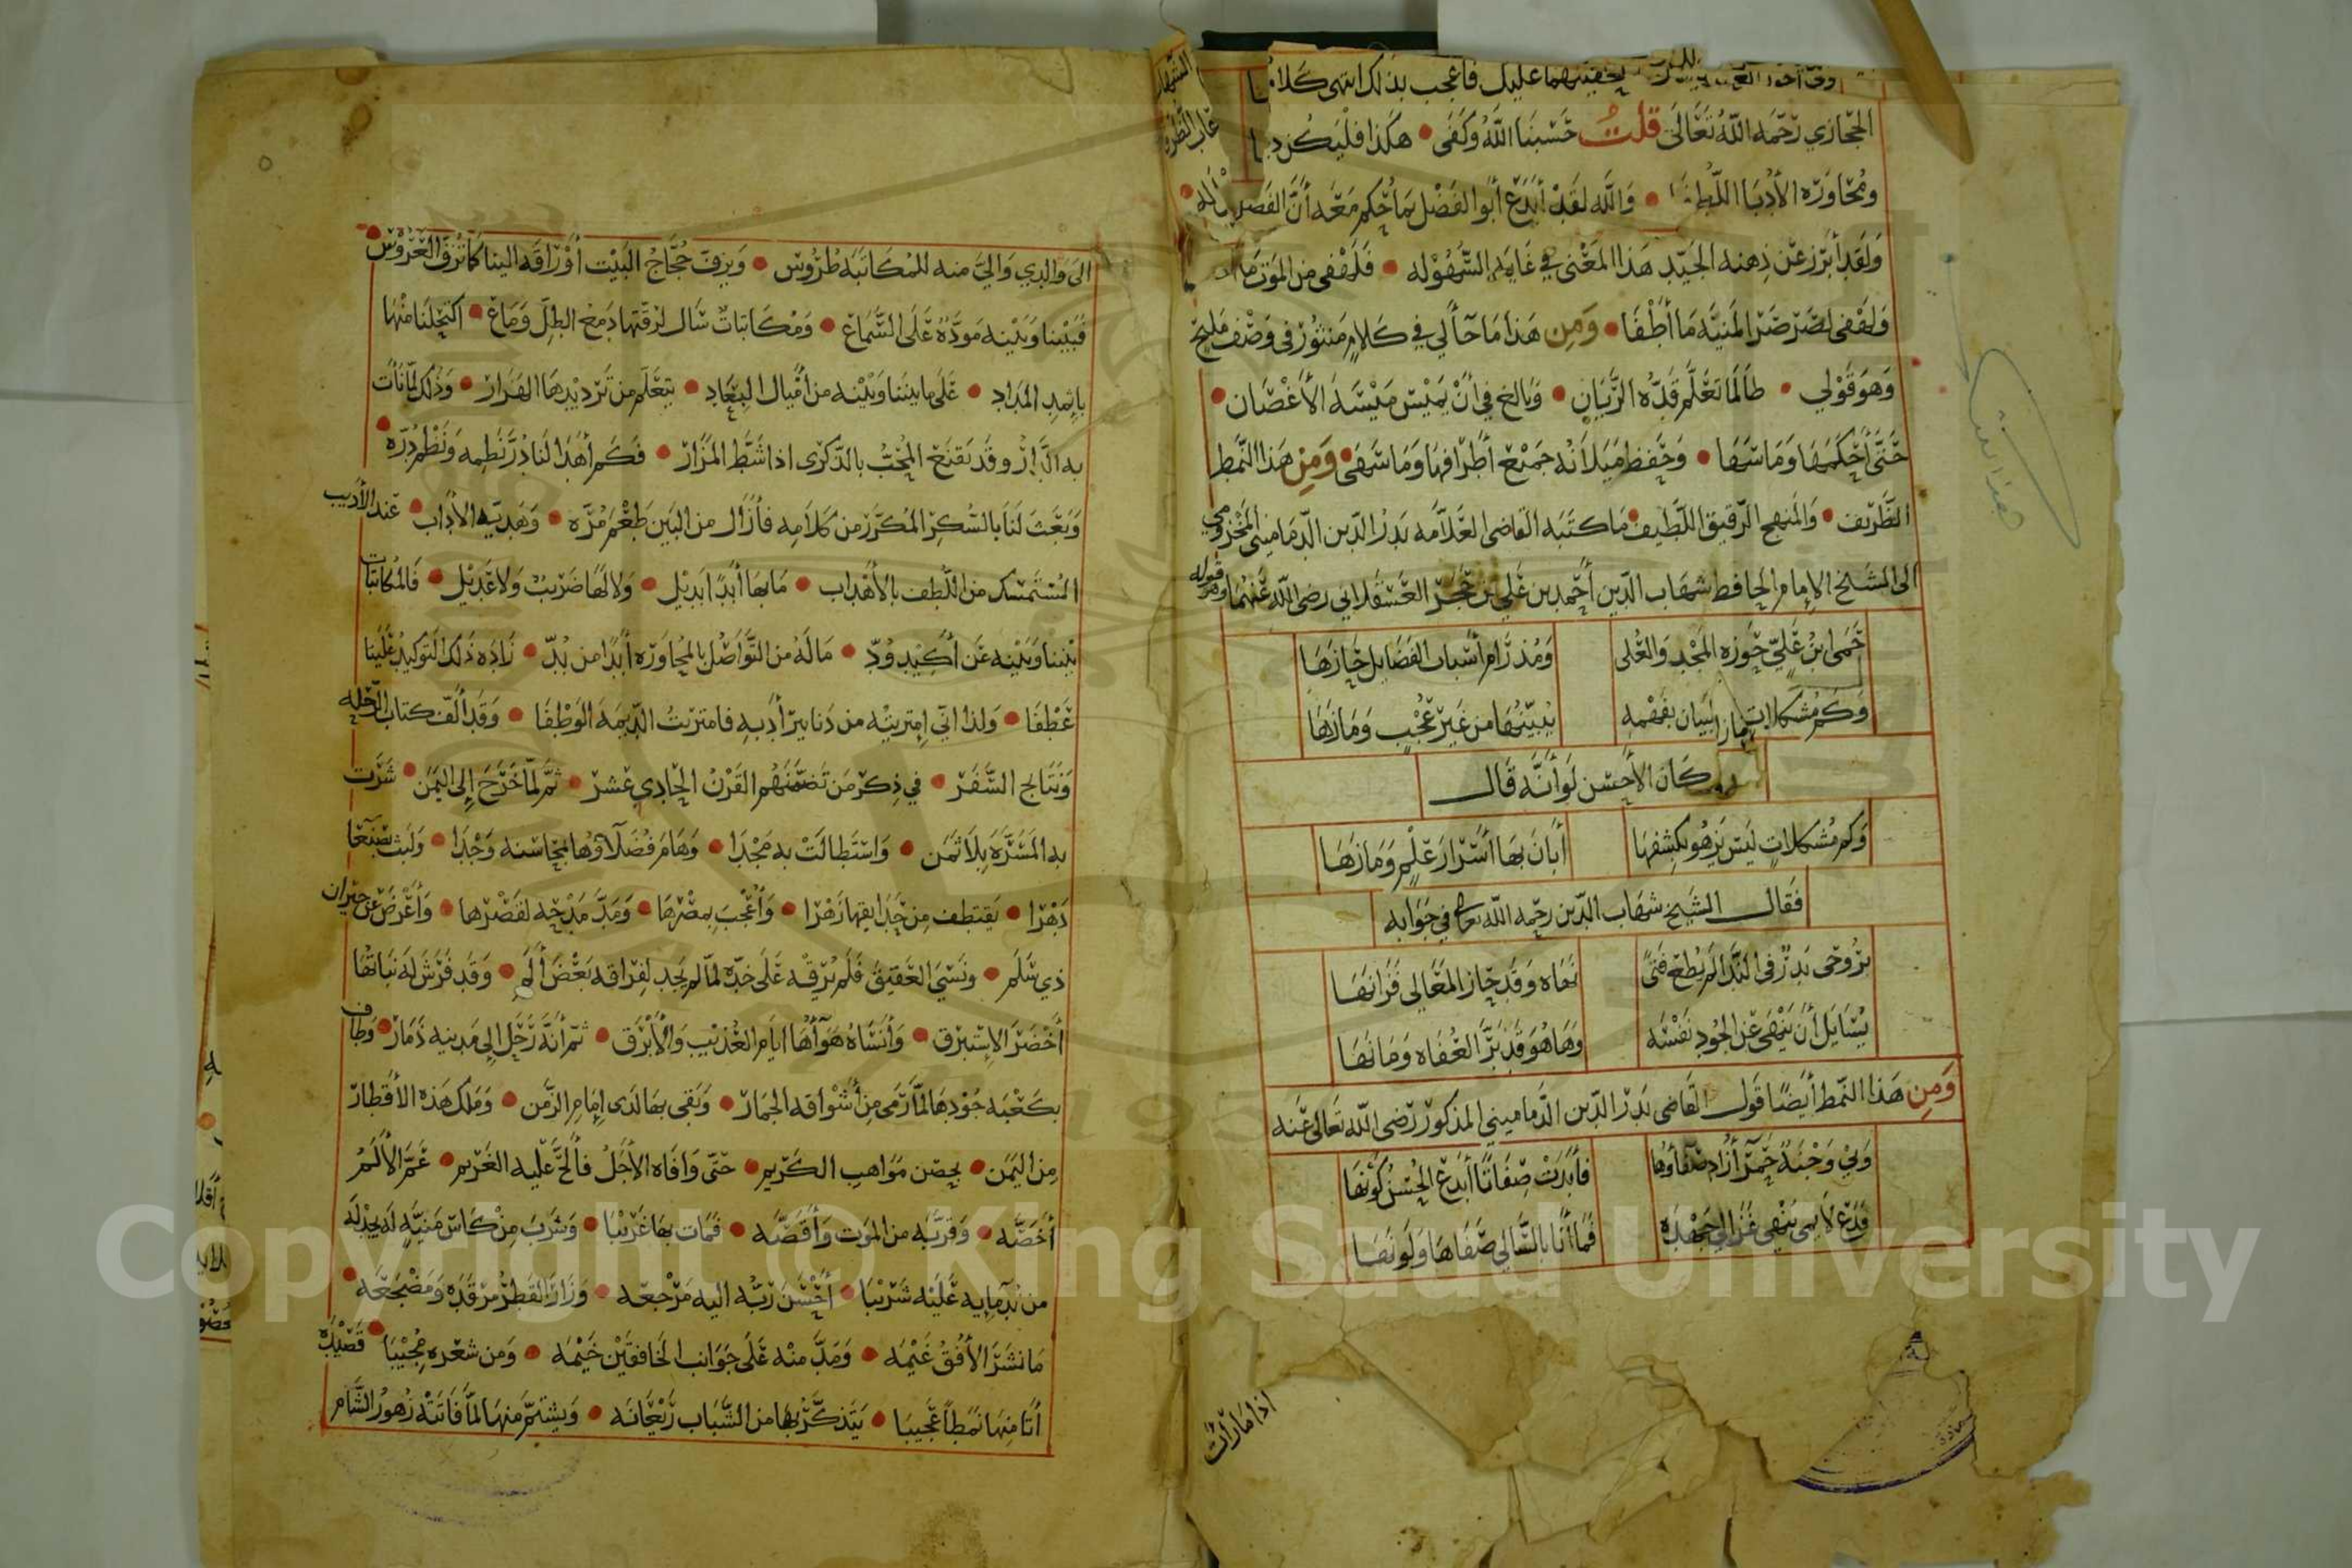 تخفيتهما عليك فاعجب بذلك انتهى كلام
الحجازي رحمه الله تعالى قلت حسبنا الله وكفى هكذا فليكن
ومحاورة الأدبا اللطفا والله لقد أبدع أبو الفضل بما حكم معه أن الفضل
ولقد أبرز عن ذهنه الجيد هذا المعنى في غاية السهولة فلهفي من الموت
ولهفي لضرّ ضرّ المنية ما أطفا ومن هذا ما جآء لي في كلام منثور في وصف مليح
وهو قولي طالما تعلم قده الريان وبالغ في أن يميس ميسة الأغصان
حتى أحكمها وما سها وحفظ ميلانه جميع أطرافها وما سهى ومن هذا النمط
الظريف والمنهج الرقيق اللطيف ما كتبه القاضي العلامة بدر الدين الدماميني المخزومي
الى الشيخ الإمام الحافظ شهاب الدين أحمد بن علي بن حجر العسقلاني رضي الله عنهما وهو قوله
حمى ابن علي حوزة المجد والعلى ومذ رام أسباب الفضايل حازها
وكم مشكلات البيان بفهمه يبينها من غير عجب وما زها
كان الأحسن لو أنه قال
وكم مشكلات ليس يزهو بكشفها أبان بها أسرار علم وما زها
فقال الشيخ شهاب الدين رحمه الله تعالى في جوابه
بروحي بدر في الندا لم يطع فتى نهاه وقد حاز المعالي فزانها
يسايل أن ينهى عن الجود نفسه وها هو قد برّ العفاة وما نها
ومن هذا النمط أيضا قول القاضي بدر الدين الدماميني المذكور رضي الله تعالى عنه
ولي وجنة حمر أزاد صفاؤها فأبدت صفاتا أبدع الحسن كونها
فدع لايمي ينهى غزالي جهده فما أنا بالسالي صفاها ولو نها
اذا ما رأت
الى والدي والي منه للمكاتبة طروس ويزف حجاج البيت أوراقه الينا كما تزف العروس
فبيننا وبينه مودة على السماع ومكاتبات سال لرقتها دمع الطل وماع اكتحلنا منها
بإثمد المداد على ما بيننا وبينه من أميال البعاد يتعلم من ترديدها الهزار وذلك لما نات
به الدار وقد يقنع المحب بالذكرى اذا شط المزار فكم أهدا لنا درّ نظمه ونظم درّه
وبعث لنا بالسكر المكرر من كلامه فأزال من البين طعم مرّه وهدية الآداب عند الأديب
المستمسك من اللطف بالأهداب ما بها أبدا بديل ولا لها ضريب ولا عديل فالمكاتبات
بيننا وبينه عن أكيد ودّ ما له من التواصل بالمحاورة أبدا من بدّ زاده ذلك التوكيد علينا
عطفا ولذا اني امتريته من دنانير أدبه فامتريت الديمة الوطفا وقد ألف كتاب الرحلة
ونتايج السفر في ذكر من تضمنهم القرن الحادي عشر ثم لما خرج إلى اليمن شرت
به المسرة بلا ثمن واستطالت به مجدا وهام فضلاؤها بمحاسنه وجدا ولبث بصنعا
دهرا يقتطف من حدايقها زهرا وأعجب بمصرها ومدّ مدحه لقصرها وأعرض عن جيران
ذي سلم ونسي العقيق فلم يرقه على خده لما لم يجد لفراقه بعض ألم وقد فرش له نباتها
أخضر الاستبرق وأنساه هوآؤها ايام العذيب والأبرق ثم أنه رحل الى مدينة ذمار وطاف
بكعبة جودها لما رمى من أشواقه الجمار وبقي بها لدى امام الزمن وملك هذه الأقطار
من اليمن بحصن مواهب الكريم حتى وافاه الأجل فألح عليه الغريم عمر الألم
أخصه وقربه من الموت وأقصه فمات بها غريبا وشرب من كاس منية لم يجد له
من ندمايه عليه شريبا أحسن ربه اليه مرجعه وزار القطر مرقده ومضجعه
ما نشر الأفق غيمه ومدّ منه على جوانب الخافقين خيمه ومن شعره مجيبا قصيدة
أتا منها نمطا عجيبا يتذكر بها من الشباب ريعانه ويشتم منها لما فاتته زهور الشام
Copyright © King Saud University